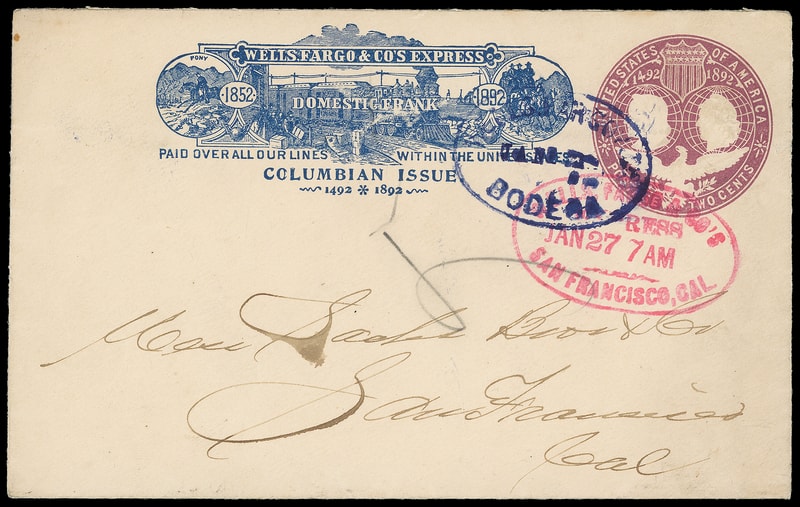 WELLS FARGO & CO'S EXPRESS
PONY
1852
DOMESTIC FRANK
1892
PAID OVER ALL OUR LINES WITHIN THE UNITED STATES
COLUMBIAN ISSUE
1492 * 1892
UNITED STATES OF AMERICA
1492 1892
TWO CENTS
BODEGA
JAN 27 7 AM
SAN FRANCISCO, CAL.
Sachs Bros & Co
San Francisco
Cal